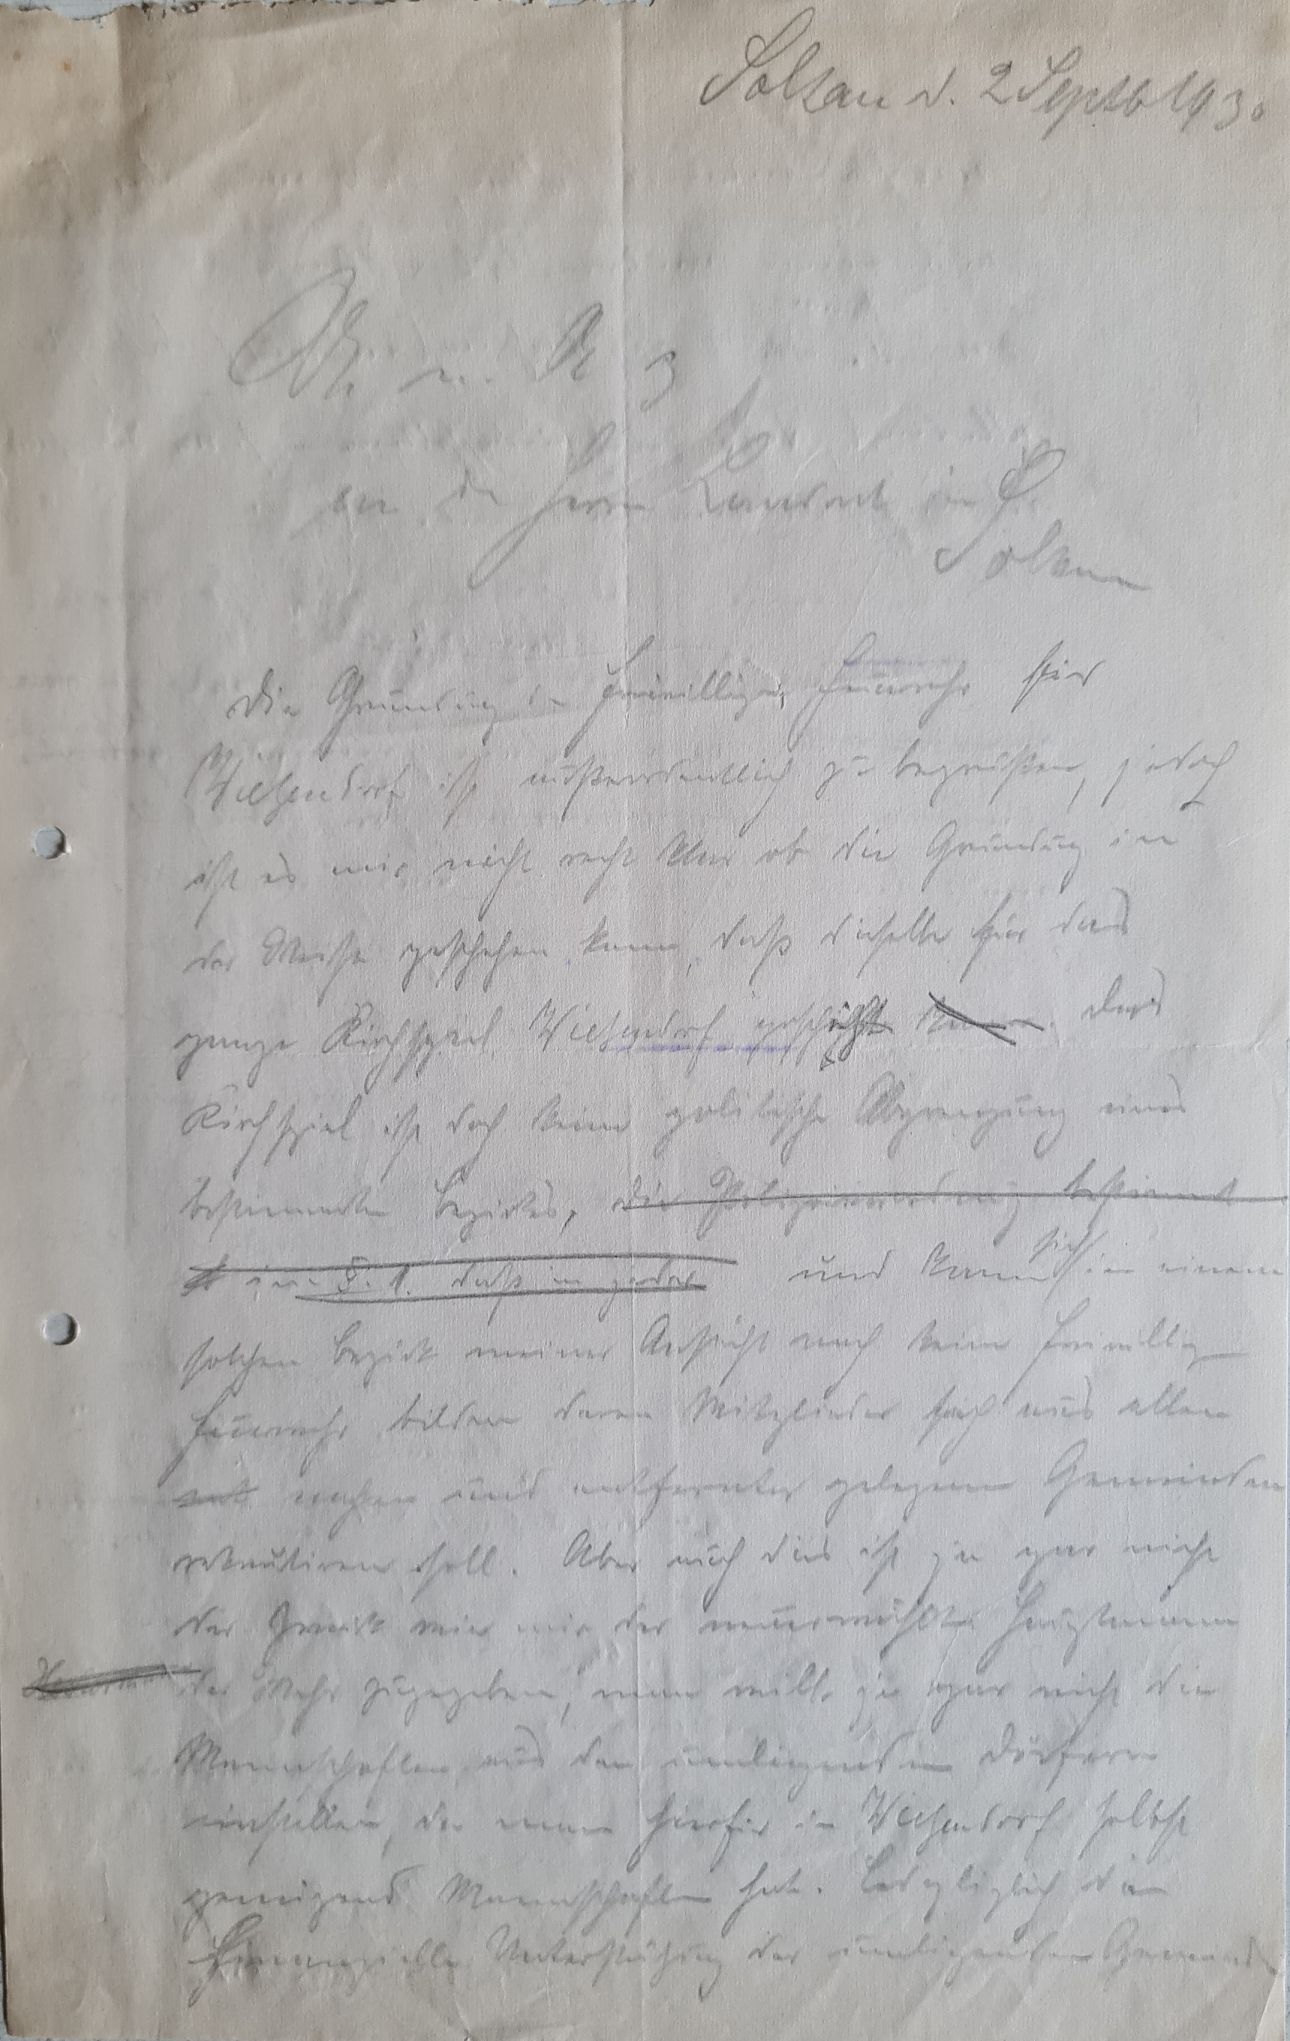 Soltau d. 2 Septb 1930
U. m. A 3
an den Herrn Landrat in S.
Soltau
Die Gründung der Freiwilligen Feuerwehr für
Wietzendorf ist außerordentlich zu begrüßen, jedoch
ist es mir nicht recht klar ob die Gründung in
der Weise geschehen kann, daß dieselbe für das
ganze Kirchspiel Wietzendorf geschieht kann. Das
Kirchspiel ist doch keine politische Abgrenzung eines
bestimmten Bezirkes, die Polizeiverordnung bestimmt
im §. 1. daß in jeder und kann sich in einem
solchen Bezirk meiner Ansicht nach keine freiwillige
Feuerwehr bilden deren Mitglieder sich aus allen
ent nahen und entfernter gelegenen Gemeinden
rekrutieren soll. Aber auch dies ist ja gar nicht
der Zweck wie mir der neuerwählte Hauptmann
der Wehr zugegeben, man will ja gar nicht die
Mannschaften aus den umliegenden Dörfern
einstellen, da man hierfür in Wietzendorf selbst
genügend Mannschaften hat. Lediglich die
finanzielle Unterstützung der umliegenden Gemeinden